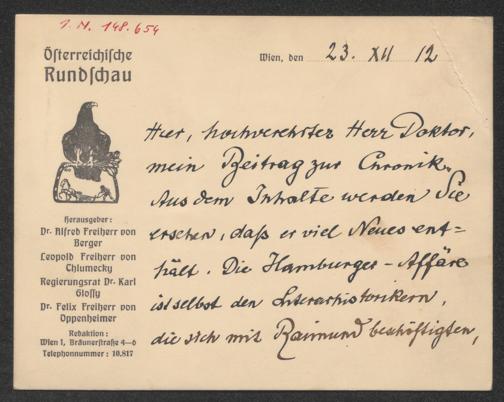 I.N. 148.654
Österreichische
Rundschau
Wien, den 23. XII 12
Herausgeber:
Dr. Alfred Freiherr von
Berger
Leopold Freiherr von
Chlumecky
Regierungsrat Dr. Karl
Glossy
Dr. Felix Freiherr von
Oppenheimer
Redaktion:
Wien I, Bräunerstraße 4—6
Telephonnummer: 10.817
Hier, hochverehrter Herr Doktor,
mein Beitrag zur Chronik.
Aus dem Inhalte werden Sie
ersehen, daß er viel Neues ent-
hält. Die Hamburger-Affäre
ist selbst den Literarhistorikern,
die sich mit Raimund beschäftigten,